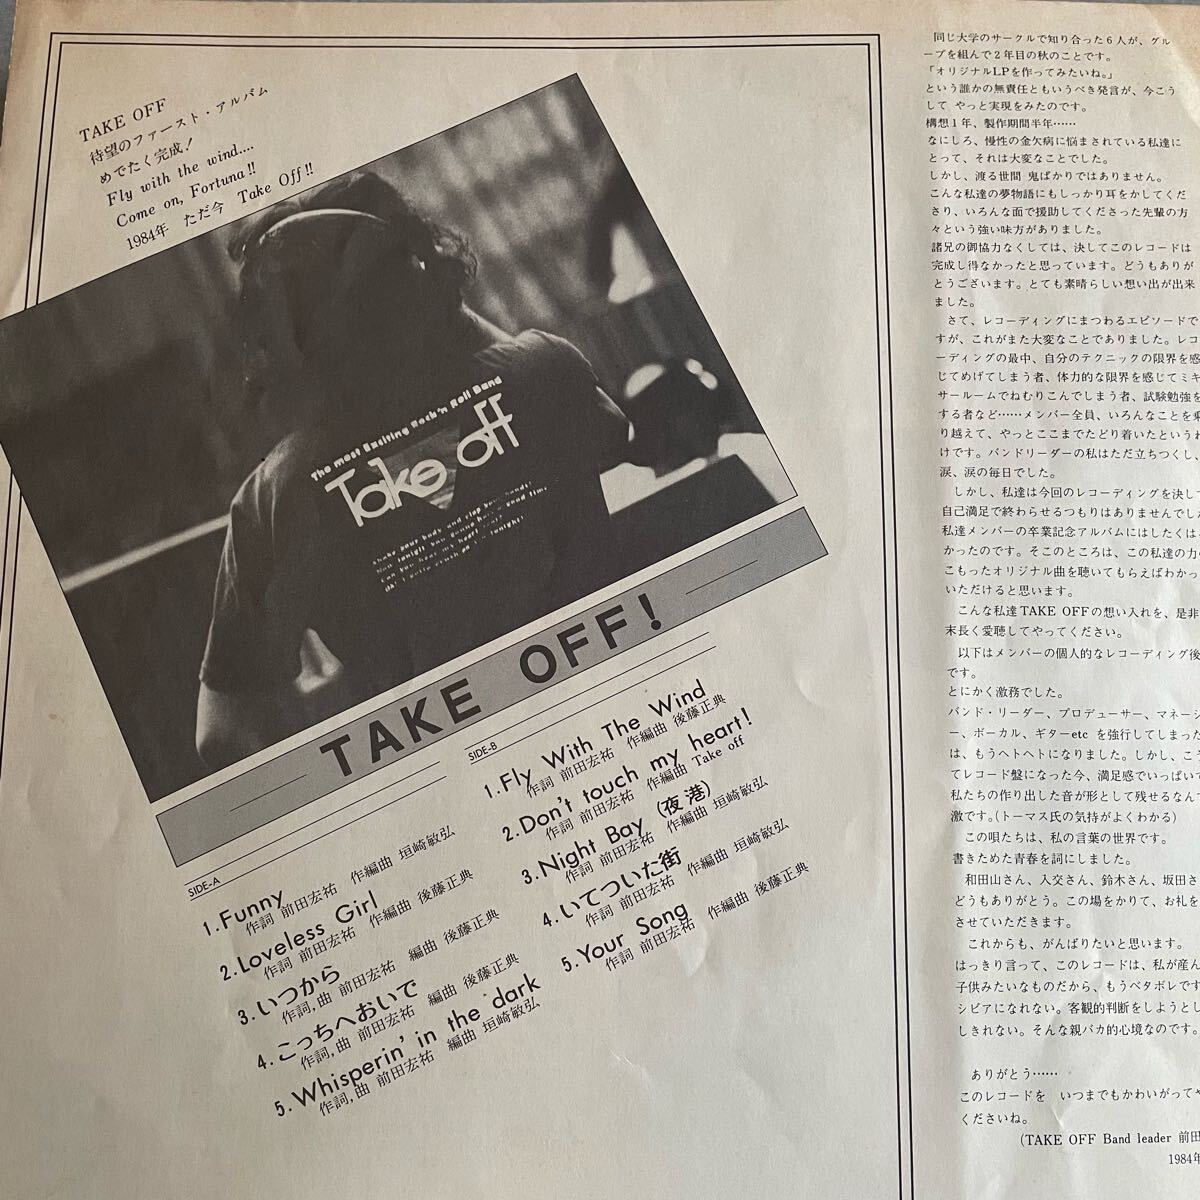 TAKE OFF
待望のファースト・アルバム
めでたく完成!
Fly with the wind....
Come on, Fortuna!!
1984年 ただ今 Take Off!!
The most Exciting Rock'n Roll Band
Take off
TAKE OFF!
SIDE-A
1.Funny
作詞 前田宏祐 作編曲 垣崎敏弘
2.Loveless Girl
作詞 前田宏祐 作編曲 後藤正典
3.いつから
作詞,曲 前田宏祐 編曲 後藤正典
4.こっちへおいで
作詞,曲 前田宏祐 編曲 後藤正典
5.Whisperin' in the dark
作詞,曲 前田宏祐 編曲 垣崎敏弘
SIDE-B
1.Fly With The Wind
作詞 前田宏祐 作編曲 後藤正典
2.Don't touch my heart!
作詞 前田宏祐 作編曲 Take off
3.Night Bay (夜港)
作詞 前田宏祐 作編曲 垣崎敏弘
4.いてついた街
作詞 前田宏祐 作編曲 垣崎敏弘
5.Your Song
作詞 前田宏祐 作編曲 後藤正典
同じ大学のサークルで知り合った6人が、グル
ープを組んで2年目の秋のことです。
「オリジナルLPを作ってみたいね。」
という誰かの無責任ともいうべき発言が、今こう
して やっと実現をみたのです。
構想1年、製作期間半年……
なにしろ、慢性の金欠病に悩まされている私達に
とって、それは大変なことでした。
しかし、渡る世間 鬼ばかりではありません。
こんな私達の夢物語にもしっかり耳をかしてくだ
さり、いろんな面で援助してくださった先輩の方
々という強い味方がありました。
諸兄の御協力なくしては、決してこのレコードは
完成し得なかったと思っています。どうもありが
とうございます。とても素晴らしい想い出が出来
ました。
さて、レコーディングにまつわるエピソードで
すが、これがまた大変なことでありました。レコ
ーディングの最中、自分のテクニックの限界を感
じてめげてしまう者、体力的な限界を感じてミキ
サールームでねむりこんでしまう者、試験勉強を
する者など……メンバー全員、いろんなことを乗
り越えて、やっとここまでたどり着いたというわ
けです。バンドリーダーの私はただ立ちつくし、
涙、涙の毎日でした。
しかし、私達は今回のレコーディングを決して
自己満足で終わらせるつもりはありませんでし
私達メンバーの卒業記念アルバムにはしたくは
かったのです。そこのところは、この私達の力
こもったオリジナル曲を聴いてもらえばわかっ
いただけると思います。
こんな私達TAKE OFFの想い入れを、是非
末長く愛聴してやってください。
以下はメンバーの個人的なレコーディング後
です。
とにかく激務でした。
バンド・リーダー、プロデューサー、マネージ
ー、ボーカル、ギターetc を強行してしまった
は、もうヘトヘトになりました。しかし、こう
てレコード盤になった今、満足感でいっぱいで
私たちの作り出した音が形として残せるなんて
激です。(トーマス氏の気持がよくわかる)
この唄たちは、私の言葉の世界です。
書きためた青春を詞にしました。
和田山さん、入交さん、鈴木さん、坂田さ
どうもありがとう。この場をかりて、お礼を
させていただきます。
これからも、がんばりたいと思います。
はっきり言って、このレコードは、私が産ん
子供みたいなものだから、もうベタボレです
シビアになれない。客観的判断をしようとし
しきれない。そんな親バカ的心境なのです。
ありがとう……
このレコードを いつまでもかわいがってや
くださいね。
(TAKE OFF Band leader 前田
1984年